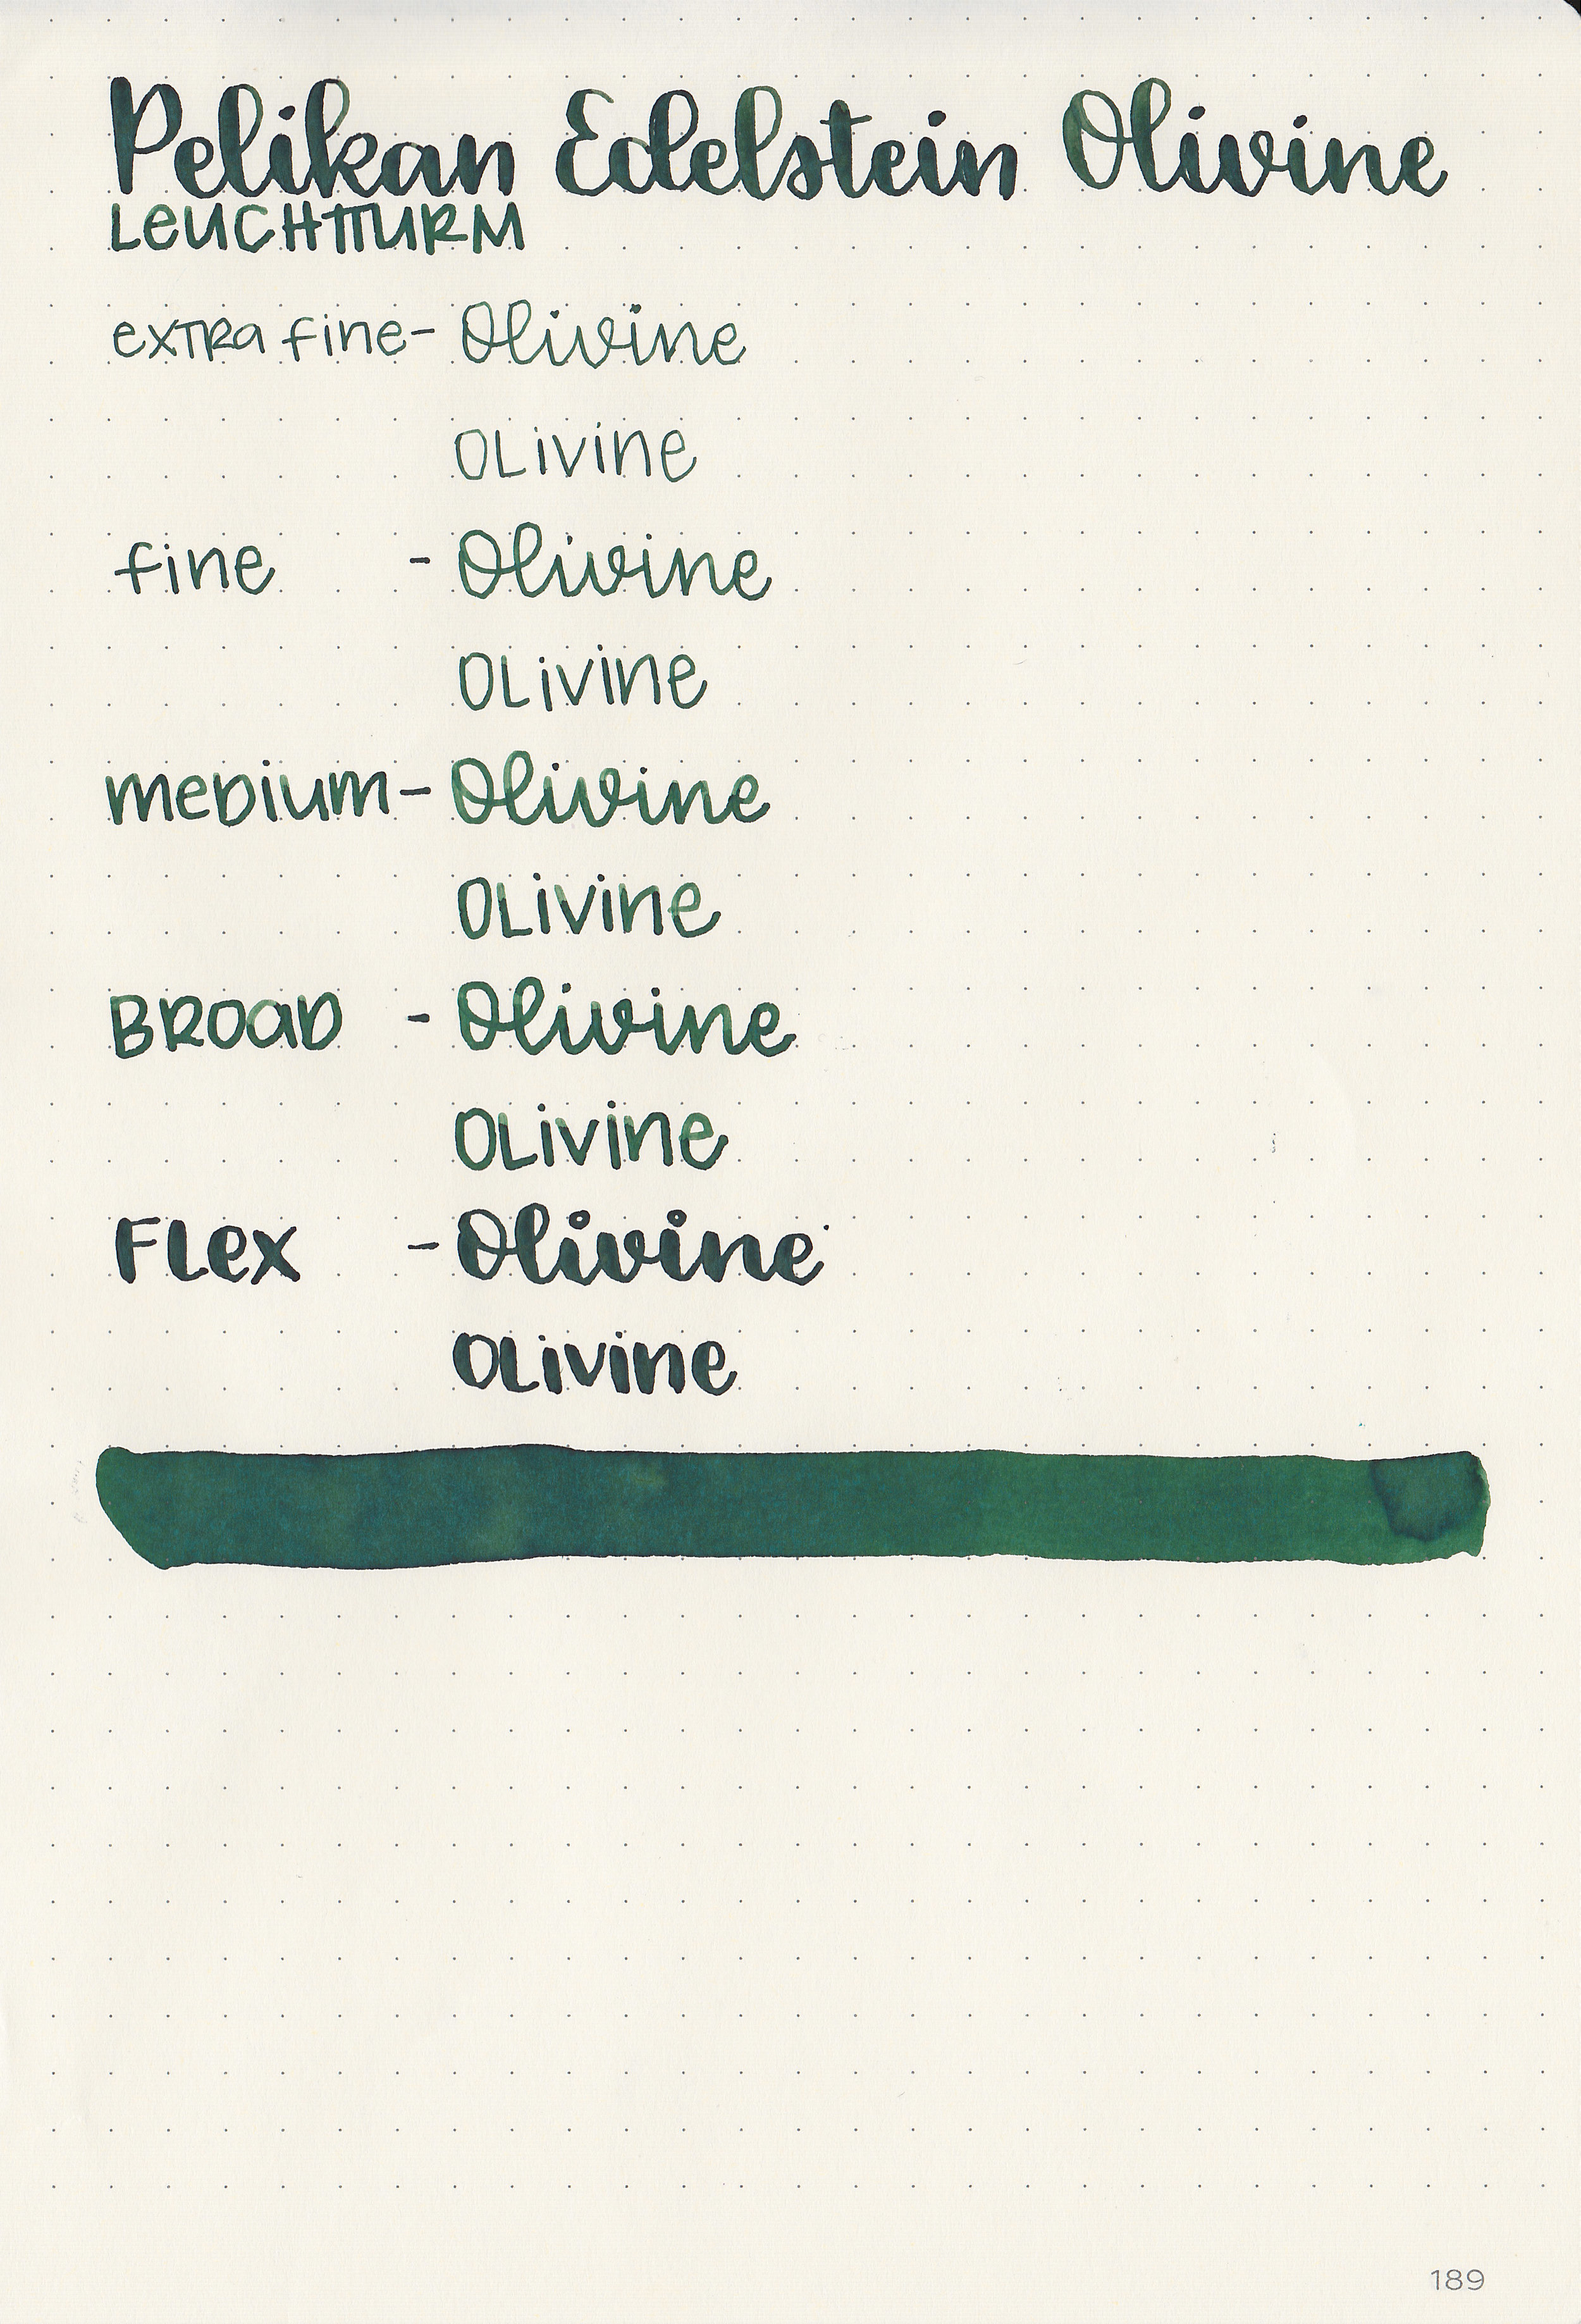 Pelikan Edelstein Olivine
LEUCHTTURM
extra fine - Olivine
OLivine
fine - Olivine
OLivine
meDium - Olivine
OLivine
BROaD - Olivine
OLivine
FLex - Olivine
OLivine
189